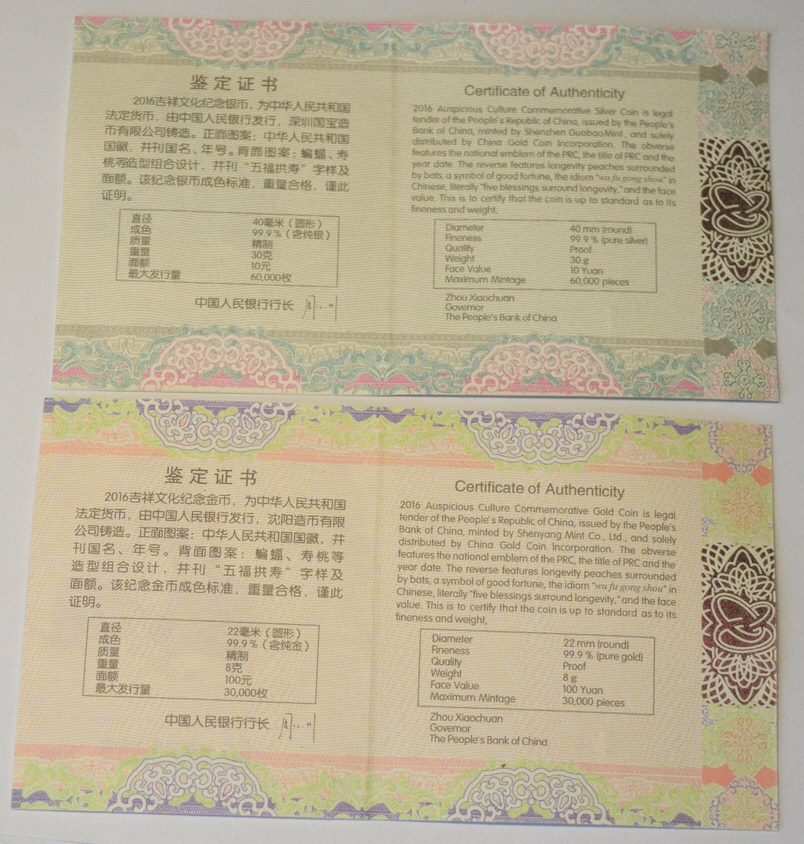 鉴定证书
2016吉祥文化纪念银币，为中华人民共和国
法定货币，由中国人民银行发行，深圳国宝造
币有限公司铸造。正面图案：中华人民共和国
国徽，并刊国名、年号。背面图案：蝙蝠、寿
桃等造型组合设计，并刊“五福拱寿”字样及
面额。该纪念银币成色标准，重量合格，谨此
证明。
直径 40毫米（圆形）
成色 99.9％（含纯银）
质量 精制
重量 30克
面额 10元
最大发行量 60,000枚
中国人民银行行长
Certificate of Authenticity
2016 Auspicious Culture Commemorative Silver Coin is legal
tender of the People's Republic of China, issued by the People's
Bank of China, minted by Shenzhen Guobao Mint, and solely
distributed by China Gold Coin Incorporation. The obverse
features the national emblem of the PRC, the title of PRC and the
year date. The reverse features longevity peaches surrounded
by bats, a symbol of good fortune, the idiom "wu fu gong shou" in
Chinese, literally "five blessings surround longevity," and the face
value. This is to certify that the coin is up to standard as to its
fineness and weight.
Diameter 40 mm (round)
Fineness 99.9 % (pure silver)
Quality Proof
Weight 30 g
Face Value 10 Yuan
Maximum Mintage 60,000 pieces
Zhou Xiaochuan
Governor
The People's Bank of China
鉴定证书
2016吉祥文化纪念金币，为中华人民共和国
法定货币，由中国人民银行发行，沈阳造币有限
公司铸造。正面图案：中华人民共和国国徽，并
刊国名、年号。背面图案：蝙蝠、寿桃等
造型组合设计，并刊“五福拱寿”字样及
面额。该纪念金币成色标准，重量合格，谨此
证明。
直径 22毫米（圆形）
成色 99.9％（含纯金）
质量 精制
重量 8克
面额 100元
最大发行量 30,000枚
中国人民银行行长
Certificate of Authenticity
2016 Auspicious Culture Commemorative Gold Coin is legal
tender of the People's Republic of China, issued by the People's
Bank of China, minted by Shenyang Mint Co., Ltd., and solely
distributed by China Gold Coin Incorporation. The obverse
features the national emblem of the PRC, the title of PRC and the
year date. The reverse features longevity peaches surrounded
by bats, a symbol of good fortune, the idiom "wu fu gong shou" in
Chinese, literally "five blessings surround longevity," and the face
value. This is to certify that the coin is up to standard as to its
fineness and weight.
Diameter 22 mm (round)
Fineness 99.9 % (pure gold)
Quality Proof
Weight 8 g
Face Value 100 Yuan
Maximum Mintage 30,000 pieces
Zhou Xiaochuan
Governor
The People's Bank of China